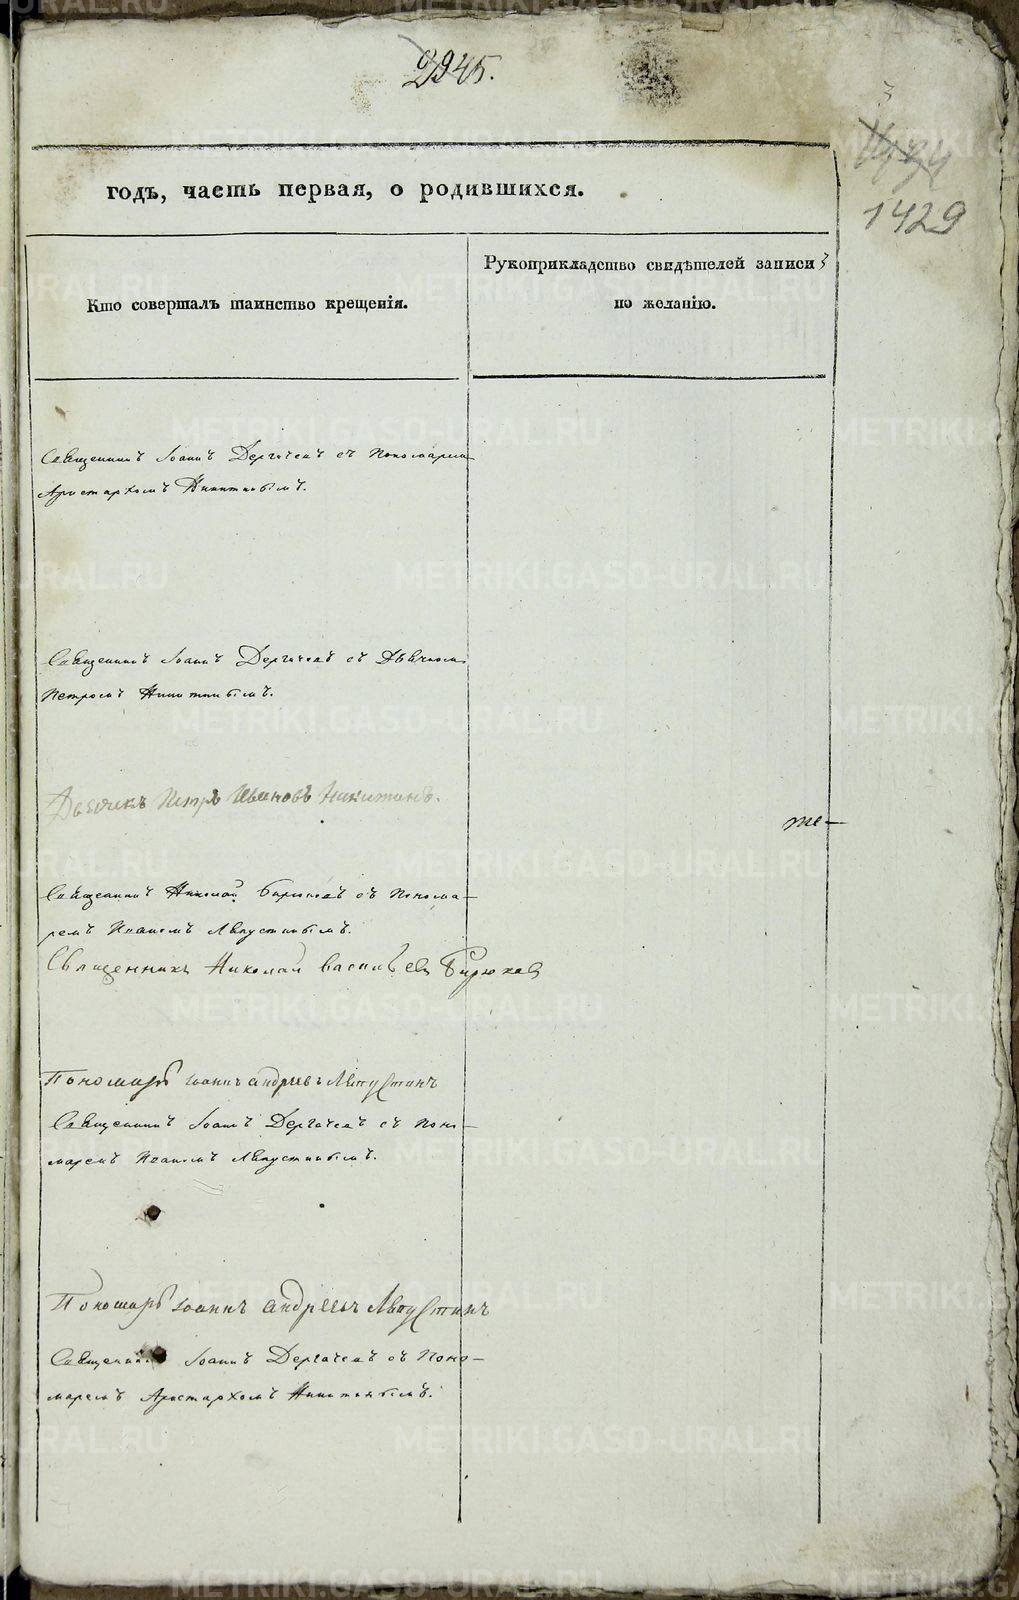 2945.
1429
годъ, часть первая, о родившихся.
Кто совершалъ таинство крещенія.
Рукоприкладство свидѣтелей записи
по желанію.
Священникъ Іоаннъ Дергачевъ съ Пономаремъ
Аристархомъ Никитинымъ.
Священникъ Іоаннъ Дергачевъ съ Дьячкомъ
Петромъ Никитинымъ.
Дьячекъ Петръ Ивановъ Никитинъ.
те-
Священникъ Николай Бирюковъ съ Понома-
ремъ Иваномъ Августинымъ.
Священникъ Николай Васильевъ Бирюковъ
Пономарь Іоаннъ Андреевъ Августинъ
Священникъ Іоаннъ Дергачевъ съ Поно-
маремъ Иваномъ Августинымъ.
Пономарь Іоаннъ Андреевъ Августинъ
Священникъ Іоаннъ Дергачевъ съ Поно-
маремъ Аристархомъ Никитинымъ.
METRIKI.GASO-URAL.RU